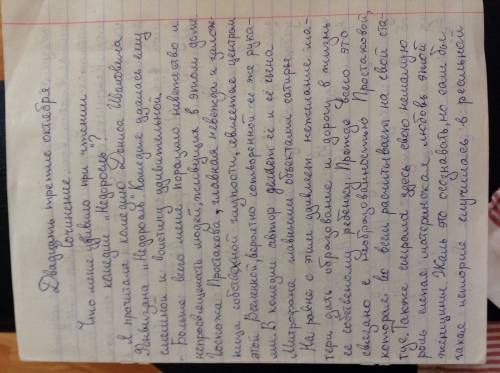 Двадцать третье октября.
Сочинение.
Что меня удивило при чтении
комедии "Недоросль"?
Я прочитала комедию Дениса Ивановича
Фонвизина „Недоросль". Комедия удалась ему
смешной и воистину удивительной.
Больше всего меня поразило невежество и
непросвещенность людей, живущих в этом доме.
Госпожа Простакова, главная невежда и залож-
ница собственной глупости, является центром
этой Вселенной, вероятно сотворенной её же рука-
ми. В комедии автор делает её и её сына
Митрофана главными объектами сатиры.
На равне с этим удивляет нежелание ма-
тери дать образование и дороги в жизнь
её собственному ребёнку. Прежде всего это
связано с необразованностью Простаковой,
которая во всём рассчитывает на свой ста-
тус. Также сыграла здесь свою немалую
роль слепая материнская любовь этой
женщины. Жаль это осознавать, но сами бы
такие истории случились в реальной